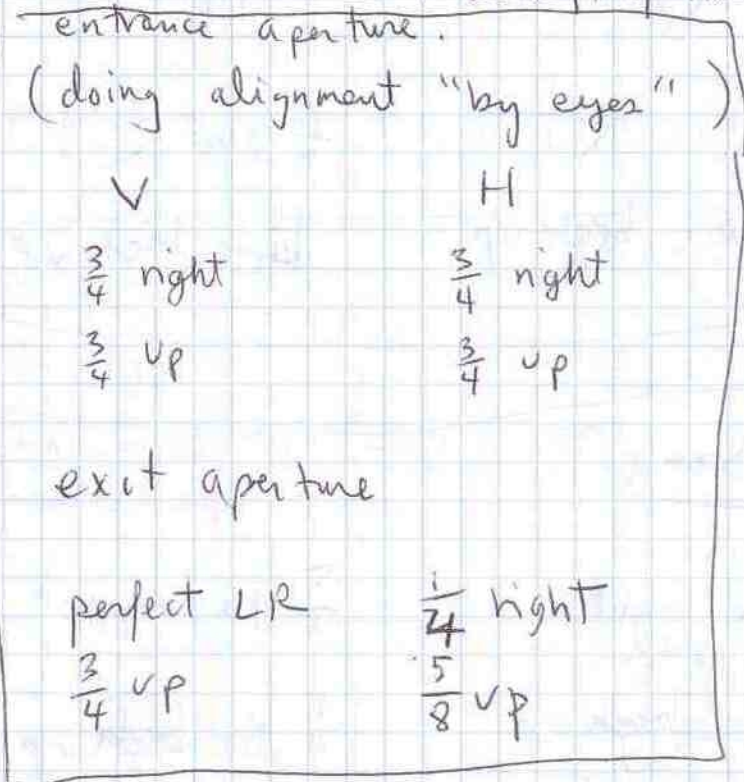 entrance aperture.
(doing alignment "by eyes")
V H
3/4 right 3/4 right
3/4 up 3/4 up
exit aperture
perfect LR 1/4 right
3/4 up 5/8 up